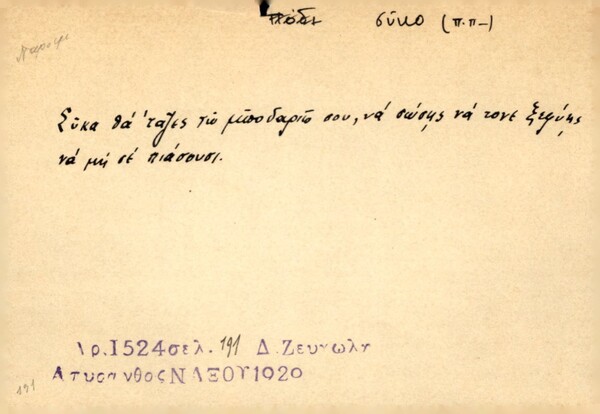 πόδι σῦκο (π.π-)
Σῦκα θά 'ταζες τῶ μποδαριῶ σου, νά σώσῃς νά τονε ξεφύγῃς
νά μή σέ πιάσουσι.
Ἀρ. 1524 σελ. 191 Δ. Ζευγώλη
Ἀπύρανθος ΝΑΞΟΥ 1920
191